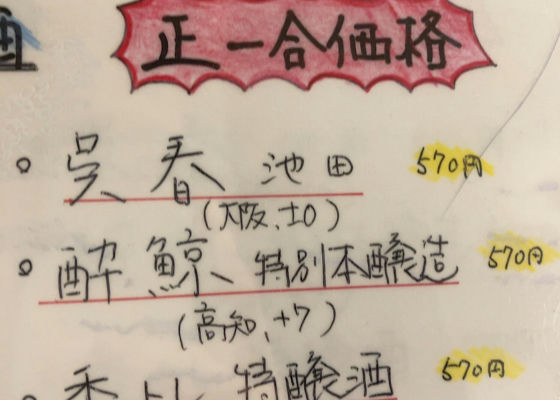 正一合価格
。呉春 池田 570円
(大阪、±0)
。酔鯨 特別本醸造 570円
(高知、+7)
特醸酒 570円